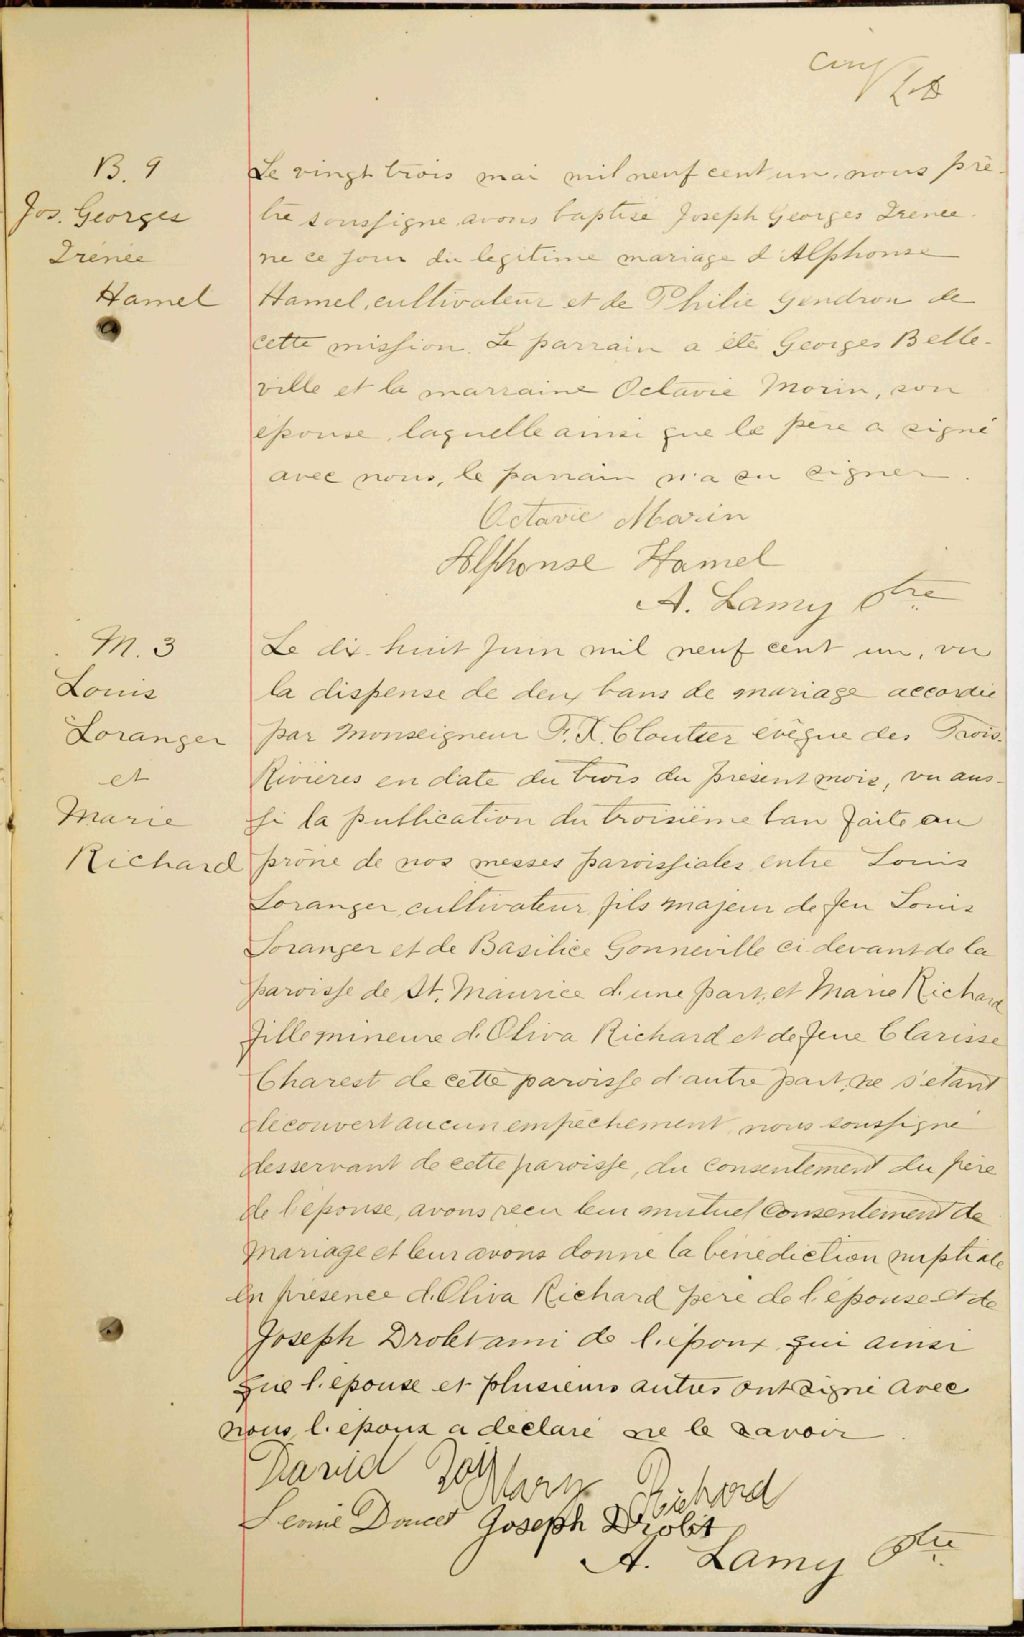 cinq
B. 9
Jos. Georges
Irénée
Hamel
Le vingt trois mai mil neuf cent un, nous prê-
tre soussigné avons baptisé Joseph Georges Irénée
né ce jour du légitime mariage d'Alphonse
Hamel, cultivateur et de Philie Gendron de
cette mission. Le parrain a été Georges Belle-
ville et la marraine Octavie Morin, son
épouse, laquelle ainsi que le père a signé
avec nous, le parrain n'a su signer.
Octavie Morin
Alphonse Hamel
A. Lamy Ptre
M. 3
Louis
Loranger
et
Marie
Richard
Le dix-huit Juin mil neuf cent un, vu
la dispense de deux bans de mariage accordée
par Monseigneur F.X. Cloutier évêque des Trois-
Rivières en date du trois du présent mois, vu aus-
si la publication du troisième ban faite au
prône de nos messes paroissiales entre Louis
Loranger, cultivateur, fils majeur de feu Louis
Loranger et de Basilice Gonneville ci-devant de la
paroisse de St. Maurice d'une part, et Marie Richard
fille mineure d'Oliva Richard et de feue Clarisse
Charest de cette paroisse d'autre part, ne s'étant
découvert aucun empêchement, nous soussigné
desservant de cette paroisse, du consentement du père
de l'épouse, avons reçu leur mutuel consentement de
mariage et leur avons donné la bénédiction nuptiale
en présence d'Oliva Richard père de l'épouse et de
Joseph Drolet ami de l'époux qui ainsi
que l'épouse et plusieurs autres ont signé avec
nous, l'époux a déclaré ne le savoir.
David Mary Richard
Doucet Joseph Drolet
A. Lamy Ptre